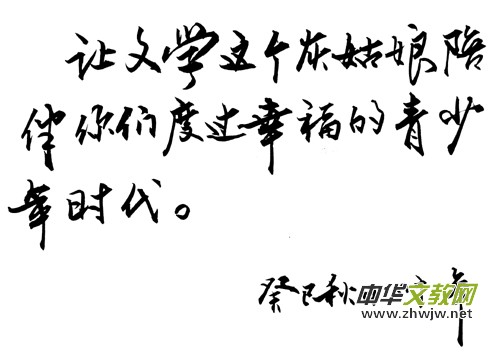 让文学这个灰姑娘陪
伴你们度过幸福的青少
年时代。
癸巳秋
中华文教网
www.zhwjw.net